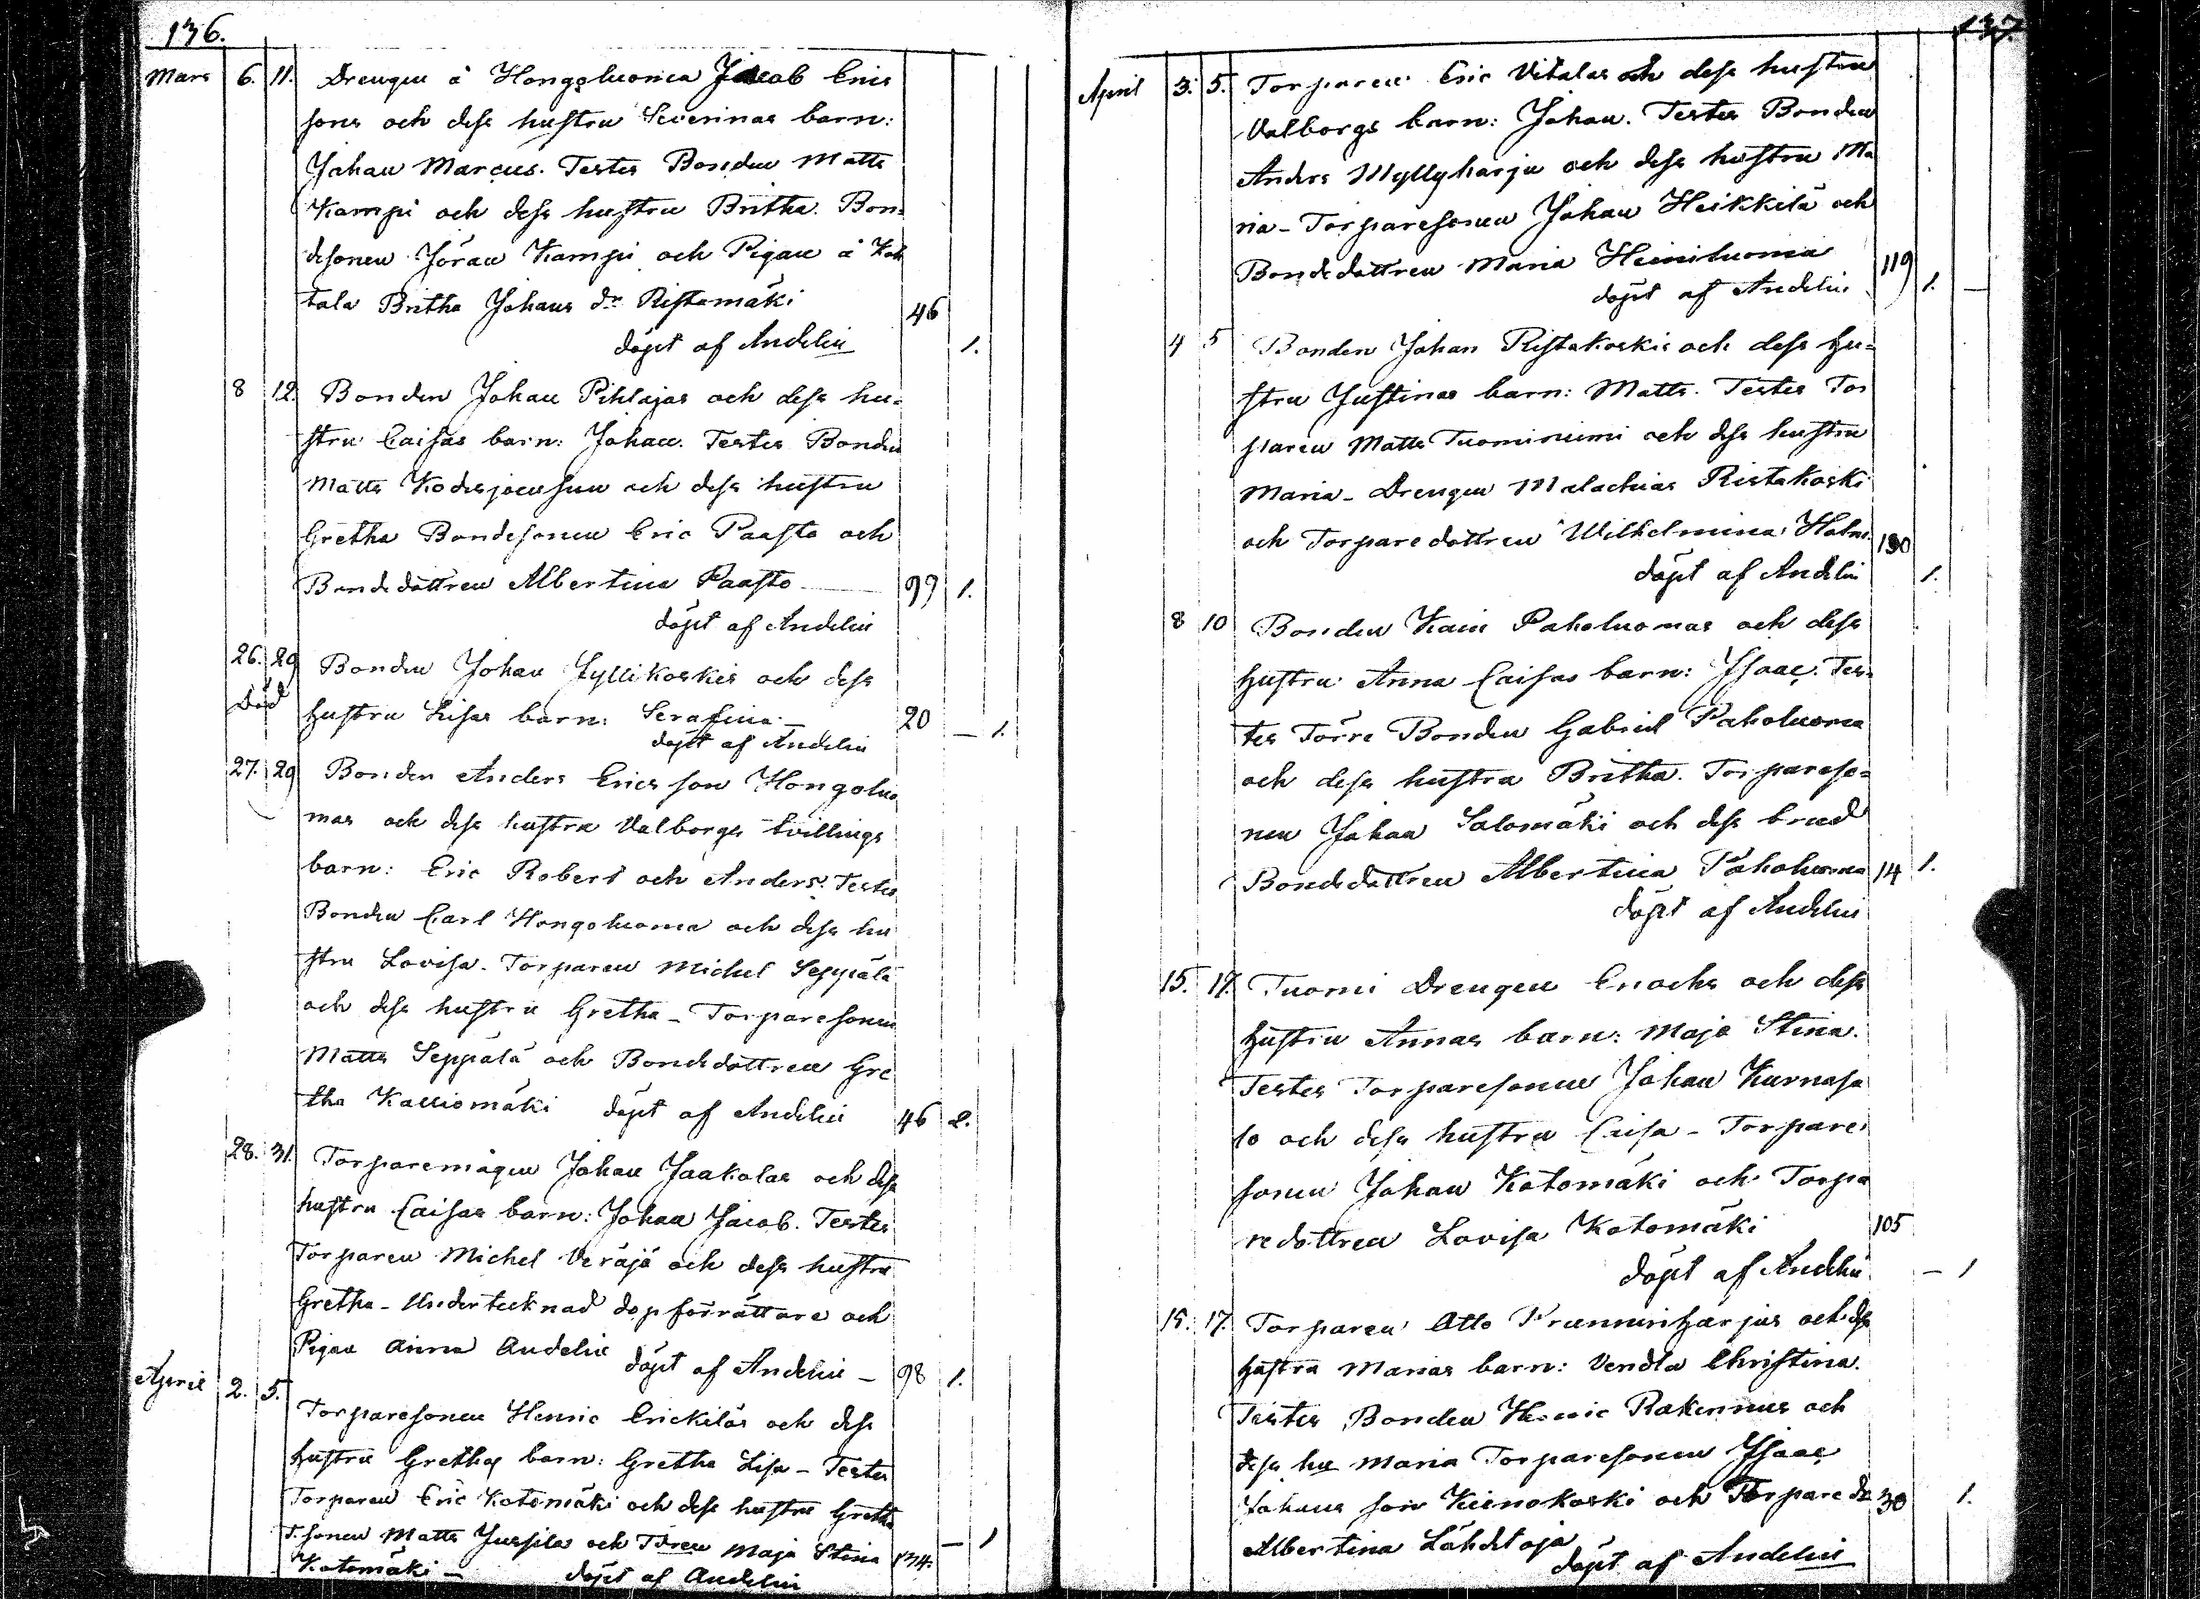 136.
Mars 6. 11. Drengen å Hongoluoma Jacob Erics
sons och dess hustru Severinas barn:
Johan Marcus. Testes Bonden Matts
Kampi och dess hustru Britha. Bon-
desonen Jöran Kampi och Pigan å
tala Britha Johans dr Ristamäki 46
döpt af Andelin 1.
8 12. Bonden Johan Pihlajas och dess hu-
stru Caisas barn: Johan. Testes Bonden
Matts och dess hustru
Gretha Bondesonen Eric Paasto och
Bondedottren Albertina Paasto 99 1.
döpt af Andelin
26. 29 Bonden Johan Jyllikoskis och dess
Död hustru Lisas barn: Serafina. 20 — 1.
döpt af Andelin
27. 29 Bonden Anders Ericsson Hongoluo
mas och dess hustru Valborgs tvillings
barn: Eric Robert och Anders. Testes
Bonden Carl Hongoluoma och dess hu
stru Lovisa. Torparen Michel Seppälä
och dess hustru Gretha - Torparesonen
Matts Seppälä och Bondedottren Gre
tha Kalliomäki döpt af Andelin 46 2.
28. 31. Torparemågen Johan Jaakolas och dess
hustru Caisas barn: Johan Jacob. Testes
Torparen Michel Veräjä och dess hustru
Gretha - Undertecknad dopförrättare och
Pigan Anna Andelin döpt af Andelin - 98 1.
April 2. 5. Torparesonen Henric Erickiläs och dess
hustru Grethas barn: Gretha Lisa - Testes
Torparen Eric Kotomäki och dess hustru Gretha
T. sonen Matts Juspila och Tdren Maja Stina 134. — 1
Kotomäki - döpt af Andelin
137.
April 3. 5. Torparen Eric Vitalas och dess hustru
Valborgs barn: Johan. Testes Bonden
Anders Myllyharju och dess hustru Ma
ria - Torparesonen Johan Heikkilä och
Bondedottren Maria Heiniluoma 119 1. —
döpt af Andelin
4 5 Bonden Johan Ristakoskis och dess hu-
stru Justinas barn: Matts. Testes Tor
paren Matts Tuominiemi och dess hustru
Maria - Drengen Malachias Ristakoski
och Torparedottren Wilhelmina Holm. 130
döpt af Andelin 1.
8 10 Bonden Pakoluomas och dess
hustru Anna Caisas barn: Isaac. Tes-
tes Törre Bonden Gabriel Pakoluoma
och dess hustru Britha. Torpareso-
nen Johan Salomäki och dess brud
Bondedottren Albertina Pakoluoma 14 1.
döpt af Andelin
15. 17. Tuomi Drengen Enochs och dess
hustru Annas barn: Maja Stina.
Testes Torparesonen Johan Kurnasa
lo och dess hustru Caisa - Torpare
sonen Johan Kotomäki och Torpa
redottren Lovisa Kotomäki 105
döpt af Andelin — 1
15. 17. Torparen Otto och dess
hustru Marias barn: Vendla Christina.
Testes Bonden Henric Rakennus och
dess hu Maria Torparesonen Isaac
Johans son Kienokoski och Torpare dr 30 1.
Albertina Lähdeloja
döpt af Andelin